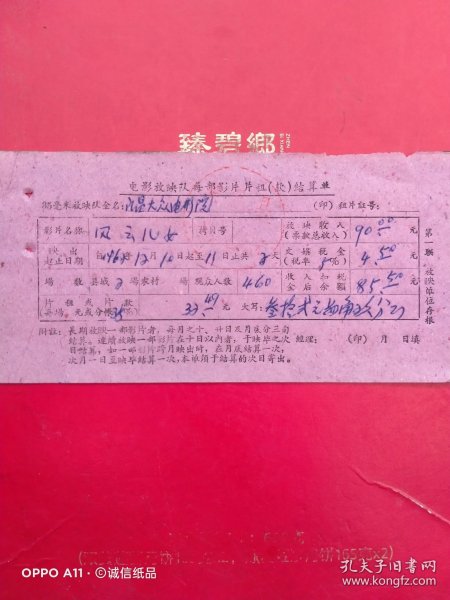 臻碧鄉
电影放映队每部影片片租(款)结算单
35毫米放映队全名: 大众电影院 (印) 租片证号:
影片名称 风云儿女 拷贝号 放映收入(票款总收入) 90.00 元
映出起止日期 1963年12月10日起至11日止共2天 文娱税金(税率5%) 4.50 元
场数 县城2场 农村 场 观众人数 460 收入扣税金后余额 85.50 元
片租或片款(每场 元或分帐35%) 元 大写:
第一联 放映单位存根
附註: 长期放映一部影片者,每月之十、廿日及月底分三旬
结算。连续放映一部影片在十日以内者,于映毕之次 经理: (印) 月 日填
日结算,如一部影片跨月映出时,在月底结算一次,
次月一日至映毕结算一次,本单须于结算的次日寄出。
OPPO A11 · ©诚信纸品
孔夫子旧书网